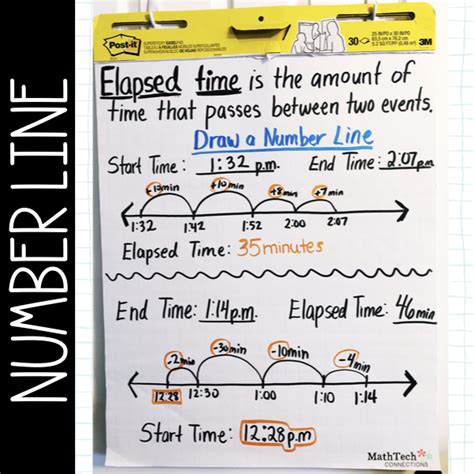 NUMBER LINE
Post-it
SUPERSTICKY EASEL PAD
25 IN/PO x 30 IN/PO
63,5 cm x 76,2 cm
5.2 SQ FT/0,48 m²
30
3M
Elapsed time is the amount of
time that passes between two events.
Draw a Number Line
Start Time: 1:32 p.m. End Time: 2:07p.m
+10min +10min +8min +7min
1:32 1:42 1:52 2:00 2:07
Elapsed Time: 35 minutes
End Time: 1:14p.m. Elapsed Time: 46min
-2min -30min -10min -4min
12:28 12:30 1:00 1:10 1:14
Start Time: 12:28p.m
MathTech
CONNECTIONS